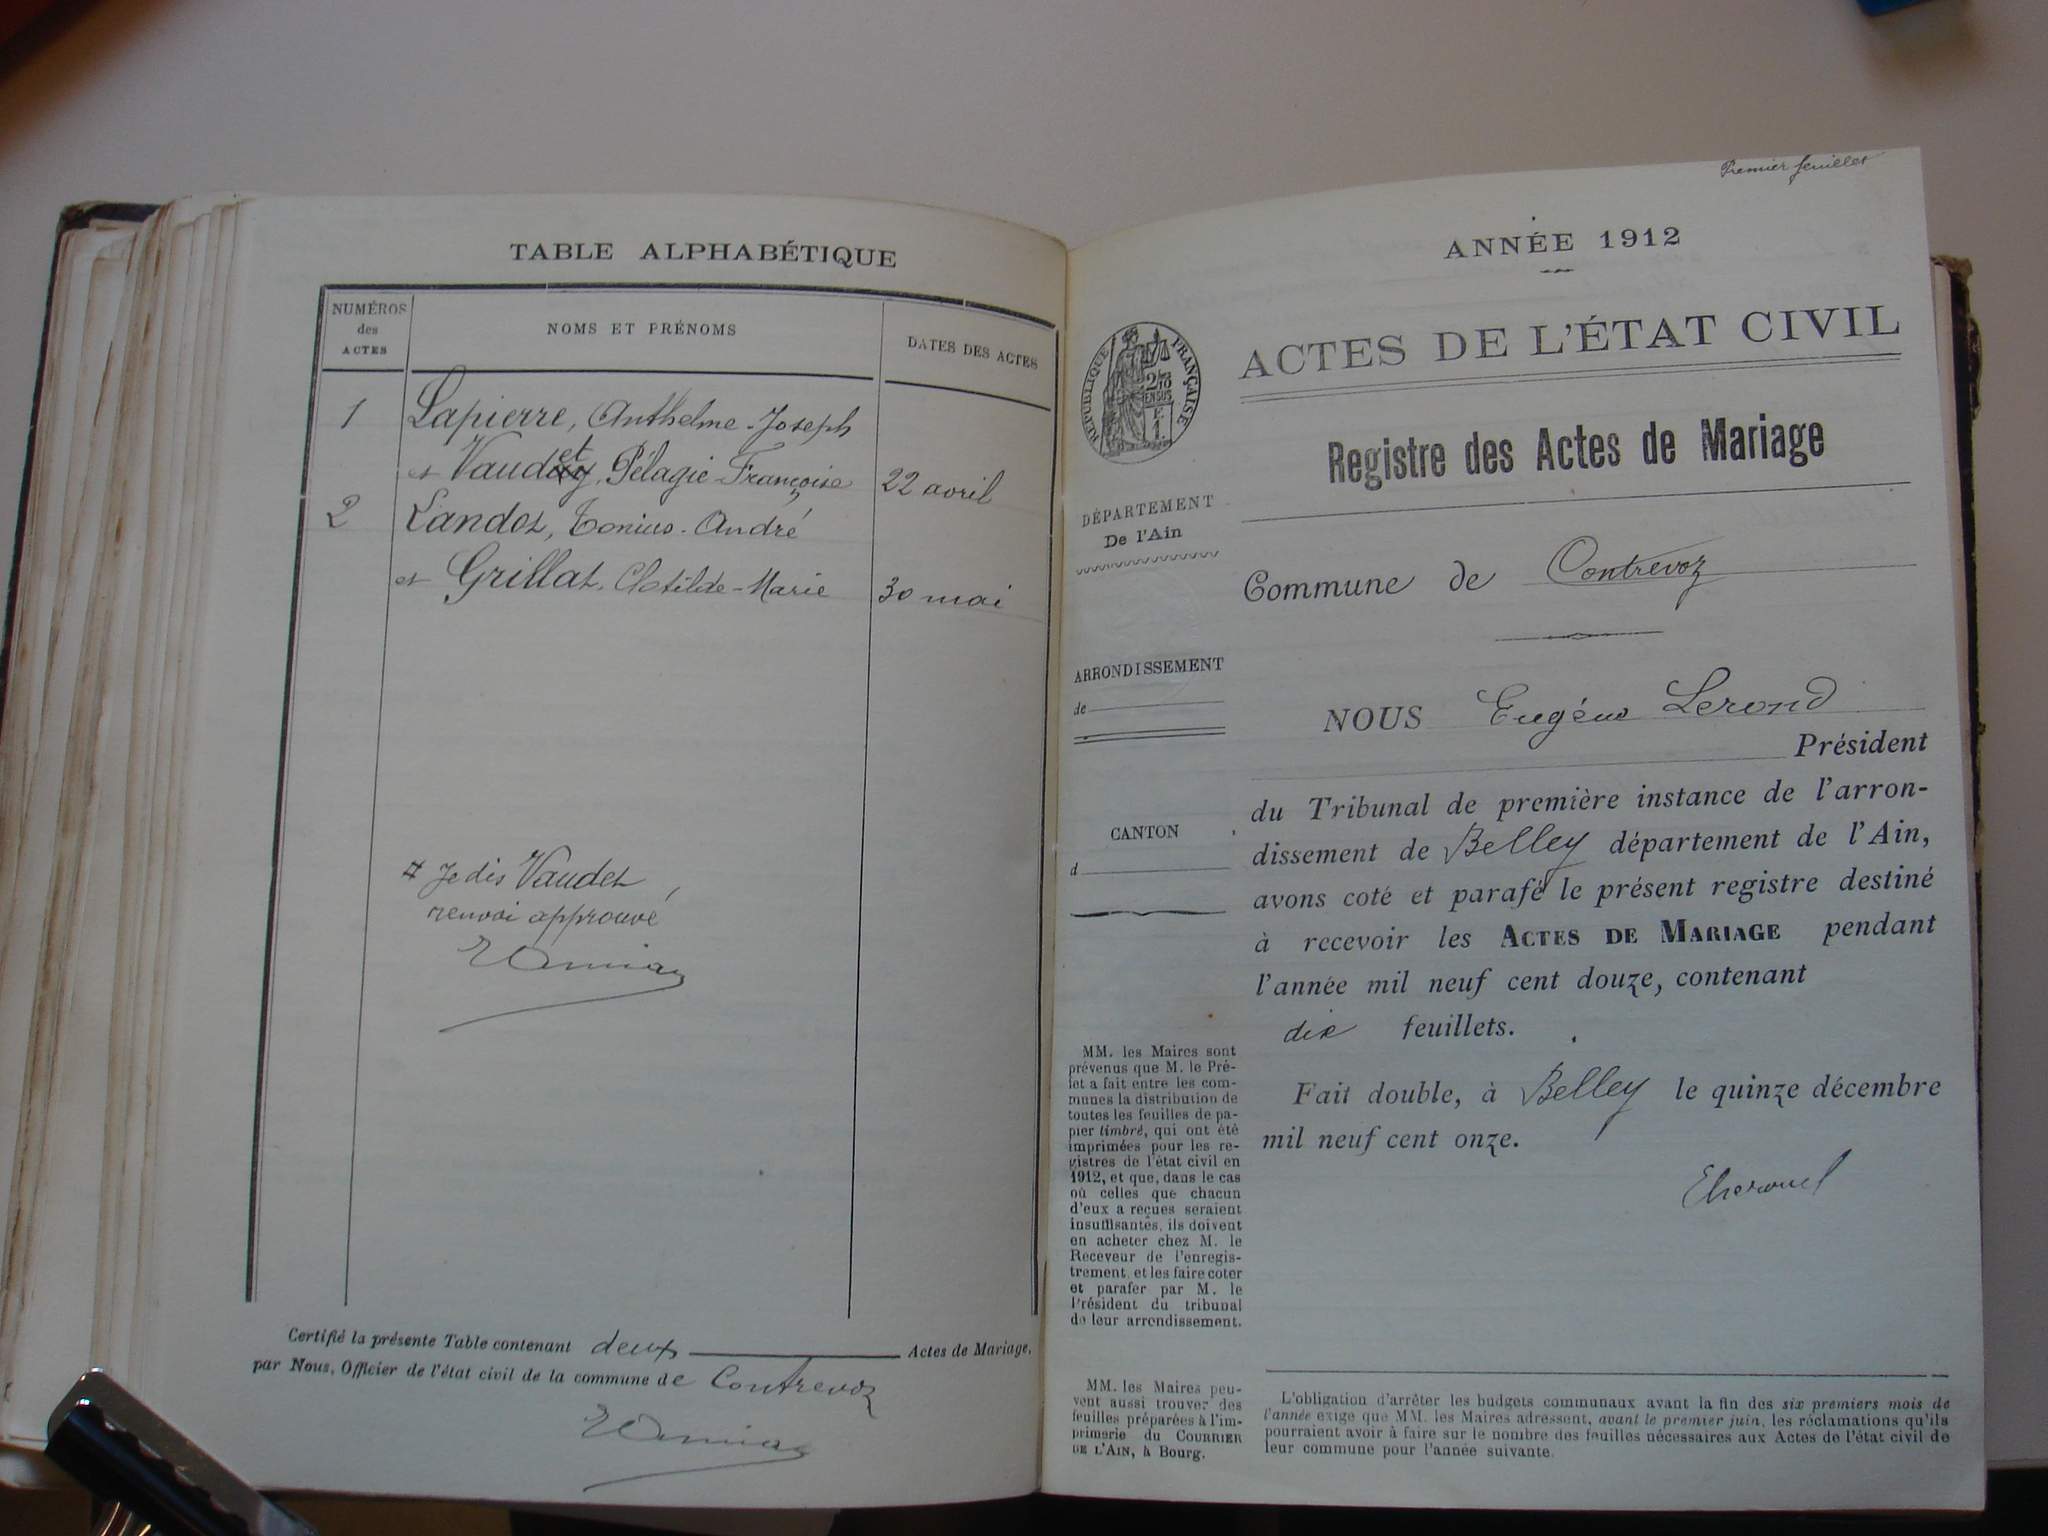 TABLE ALPHABÉTIQUE
NUMÉROS
des
ACTES
NOMS ET PRÉNOMS
DATES DES ACTES
1 Lapierre, Anthelme-Joseph
et Vaudet, Pélagie-Françoise 22 avril
2 Landoz, Tonius-André
et Grillat, Clotilde-Marie 30 mai
# Je dis Vaudet,
renvoi approuvé
Certifié la présente Table contenant deux Actes de Mariage,
par Nous, Officier de l'état civil de la commune de Contrevoz
Premier feuillet
ANNÉE 1912
ACTES DE L'ÉTAT CIVIL
RÉPUBLIQUE FRANÇAISE
Registre des Actes de Mariage
DÉPARTEMENT
De l'Ain
Commune de Contrevoz
ARRONDISSEMENT
de
NOUS Eugène Lerond
Président
du Tribunal de première instance de l'arron-
dissement de Belley département de l'Ain,
avons coté et parafé le présent registre destiné
à recevoir les ACTES DE MARIAGE pendant
l'année mil neuf cent douze, contenant
dix feuillets.
CANTON
d
Fait double, à Belley le quinze décembre
mil neuf cent onze.
MM. les Maires sont
prévenus que M. le Pré-
fet a fait entre les com-
munes la distribution de
toutes les feuilles de pa-
pier timbré, qui ont été
imprimées pour les re-
gistres de l'état civil en
1912, et que, dans le cas
où celles que chacun
d'eux a reçues seraient
insuffisantes, ils doivent
en acheter chez M. le
Receveur de l'enregis-
trement, et les faire coter
et parafer par M. le
Président du tribunal
de leur arrondissement.
MM. les Maires peu-
vent aussi trouver des
feuilles préparées à l'im-
primerie du COURRIER
DE L'AIN, à Bourg.
L'obligation d'arrêter les budgets communaux avant la fin des six premiers mois de
l'année exige que MM. les Maires adressent, avant le premier juin, les réclamations qu'ils
pourraient avoir à faire sur le nombre des feuilles nécessaires aux Actes de l'état civil de
leur commune pour l'année suivante.